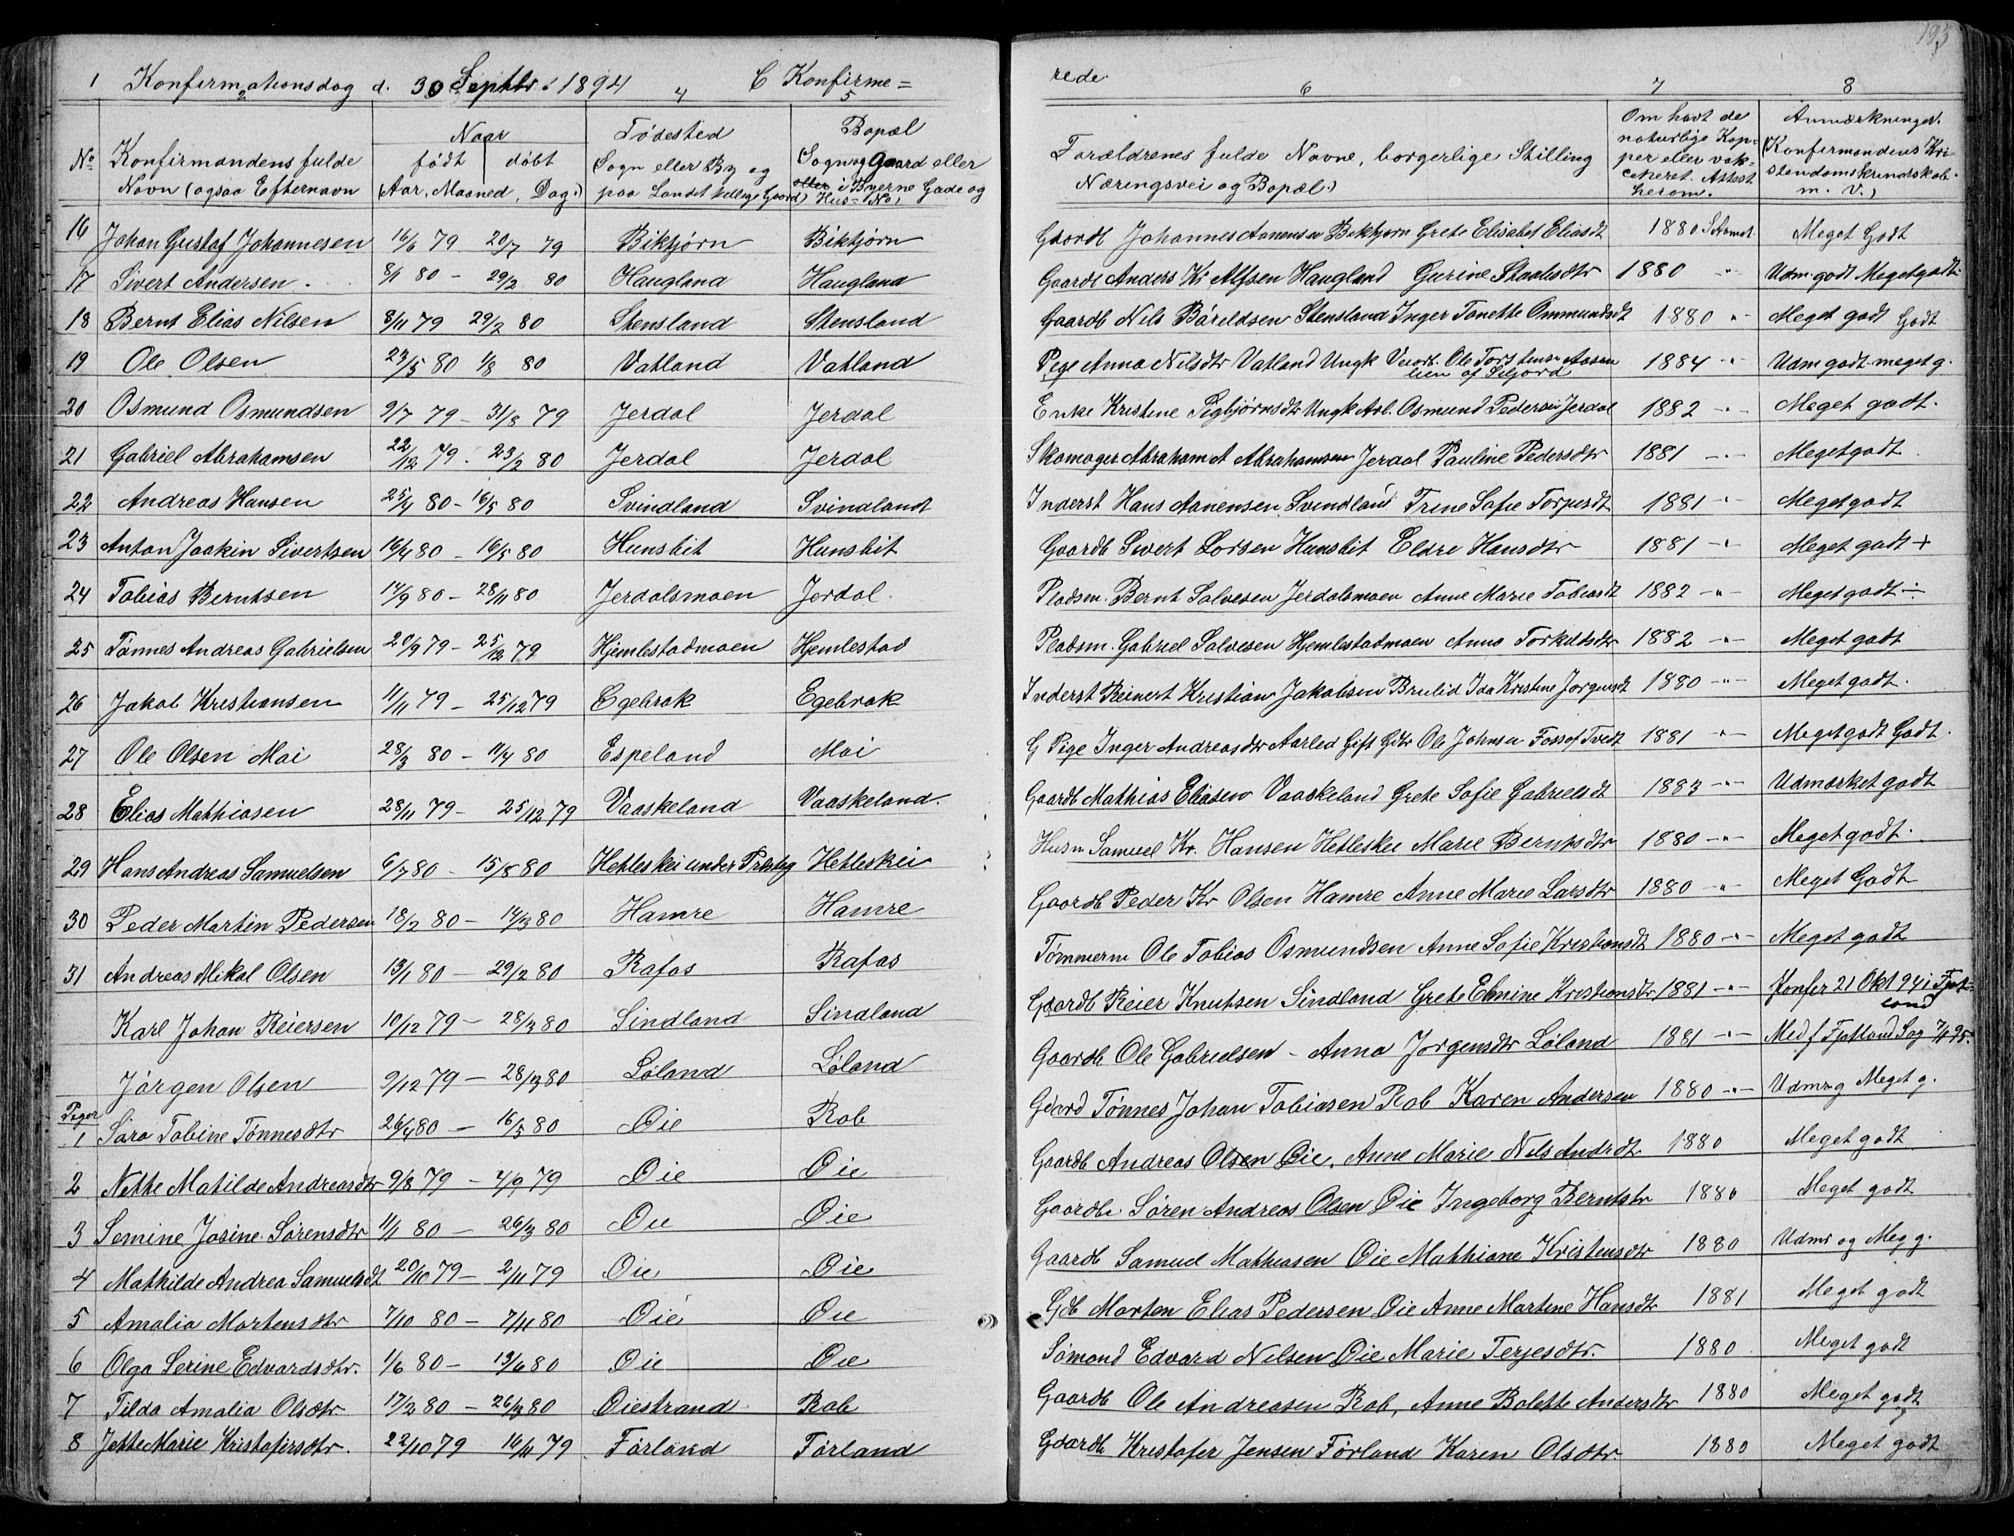 193
1 Konfirmationsdag d. 30 Septbr. 1894 C Konfirme=
rede.
2 4 5 6 7 8
No Konfirmandens fulde Navn (ogsaa Efternavn
Naar født døbt (Aar, Maaned, Dag.)
Fødested Sogn eller By og paa Landet tillige Gaard)
Bopæl Sogn og Gaard eller i Byerne Gade og Hus-No.
Forældrenes fulde Navne, borgerlige Stilling Næringsvei og Bopæl.)
Om havt de naturlige Kopper eller vakcineret. Attest herom.
Anmærkninger. (Konfirmandens Kristendomskundskab m. V.)
16 Johan Gustaf Johannesen 16/6 79 20/7 79 Biktjørn Biktjørn Gaardb Johannes Aanensen Biktjørn Grete Elisabet Eliasdt 1880 Meget Godt
17 Sivert Andersen 8/1 80 - 29/2 80 Haugland Haugland Gaardb Anders Kr Alfsen Haugland Gurine Staalesdtr 1880 -"- Udm godt Meget godt
18 Bernt Elias Nilsen 8/11 79 29/2 80 Stensland Stensland Gaardb Nils Bårildsen Stensland Inger Tonette Ommundsdt 1880 " Meget godt Godt
19 Ole Olsen 23/5 80 1/8 80 Vatland Vatland Pige Anna Nilsdtr Vatland Ungk Ole Torstens. Aasen lien af Siljord 1884 -"- Udm godt meget g.
20 Osmund Osmundsen 9/7 79 - 31/8 79 Jerdal Jerdal Enke Kristine Sigbjørnsdtr Ungk Arb. Osmund Pedersen Jerdal 1882 -"- Meget godt.
21 Gabriel Abrahamsen 22/12 79. 23/2 80 Jerdal Jerdal Skomager Abraham A Abrahamsen Jerdal Pauline Pedersdtr 1881 -"- Meget godt
22 Andreas Hansen 25/4 80 - 16/5 80 Svindland Svindland Inderst Hans Aanensen Svindland Trine Sofie Torgersdt 1881 -"- Meget godt
23 Anton Joakin Sivertsen 16/4 80 - 16/5 80 Hunsbit Hunsbit Gaardb Sivert Larsen Hunsbit Eldre Hansdtr 1881 -"- Meget godt +
24 Tobias Berntsen 14/9 80 - 28/11 80 Jerdalsmoen Jerdal. Pladsm. Bernt Salvesen Jerdalsmoen Anne Marie Tobiasdt 1882 -"- Meget godt ÷
25 Tønnes Andreas Gabrielsen 20/9 79 - 25/12 79 Hjemlestadmoen Hjemlestad Pladsm. Gabriel Salvesen Hjemlestadmoen Anna Torkildsdtr 1882 -"- Meget godt
26 Jakob Kristiansen 11/11 79 - 25/12 79 Egebrok Egebrok Inderst Reinert Kristian Jakobsen Brulid Ida Kristine Jørgensdt 1880 -"- Meget godt.
27 Ole Olsen Moi 28/3 80 - 11/4 80 Espeland Moi G Pige Inger Andreasdtr Aarled Gift Gdbr Ole Johnsen Foss af Tvedt 1881 -"- Meget godt Godt.
28 Elias Mathiasen 28/11 79 - 25/12 79 Vaaskeland Vaaskeland. Gaardb Mathias Eliasen Vaaskeland Grete Sofie Gabrielsdt 1883 -"- Udmærket godt
29 Hans Andreas Samuelsen 6/7 80 - 15/8 80 Hetleskei under Hetleskei Husm Samuel Kr. Hansen Hetleskei Marie Berntsdtr 1880 -"- Meget godt.
30 Peder Martin Pedersen 18/2 80 - 14/3 80 Hamre Hamre Gaardb Peder Kr Olsen Hamre Anne Marie Larsdtr 1880 -"- Meget Godt
31 Andreas Mikal Olsen 13/1 80 - 29/2 80 Rafas Rafas Tømmerm Ole Tobias Osmundsen Anne Sofie Kristiansdt 1880 -"- Meget godt
Karl Johan Reiersen 10/12 79 - 28/3 80 Sindland Sindland Gaardb Reier Knutsen Sindland Grete Elmine Kristiansdtr 1881 -"- Konfer 21 Okt 94 i Fjotland
Jørgen Olsen 9/12 79 - 28/3 80 Løland Løland Gaardb Ole Gabrielsen - Anna Jørgensdtr Løland 1881 -"- Med f Fjotland Sog 7/4 95.
Piger
1 Sara Tobine Tønnesdtr 26/4 80 - 16/5 80 Øie Rob Gaard Tønnes Johan Tobiasen Rob Karen Andersen 1880 -"- Udm og Meget g.
2 Nette Matilde Andreasdtr 9/8 79 - 4/9 79 Øie Øie Gaardb Andreas Olsen Øie. Anne Marie Nels Andrdt 1880 Meget godt
3 Semine Josine Sørensdtr 11/1 80 - 26/3 80 Øie Øie Gaardbr. Søren Andreas Olsen Øie Ingeborg Berntsdtr 1880 Meget godt
4 Mathilde Andrea Samuelsdt 20/10 79 - 2/11 79 Øie Øie Gaardb Samuel Mathiasen Øie Mathiane Kristensdtr 1880 Udmr og Meg g.
5 Amalia Martensdtr 7/10 80 - 7/11 80 Øie Øie Gdb Morten Elias Pedersen Øie Anne Martine Hansdtr 1881 Meget godt
6 Olga Serine Edvardsdtr. 1/6 80 - 13/6 80 Øie Øie Sømand Edvard Nilsen Øie Marie Terjesdtr. 1880 Meget godt
7 Tilda Amalia Olsdtr 17/2 80 - 26/3 80 Øiestrand Rob Gaardb Ole Andreasen Rob, Anne Bolette Andersdtr 1880 Meget godt
8 Jette Marie Kristofersdtr. 22/10 79 16/11 79 Førland Førland Gaardb Kristofer Jensen Førland Karen Olsdtr. 1880 Meget godt